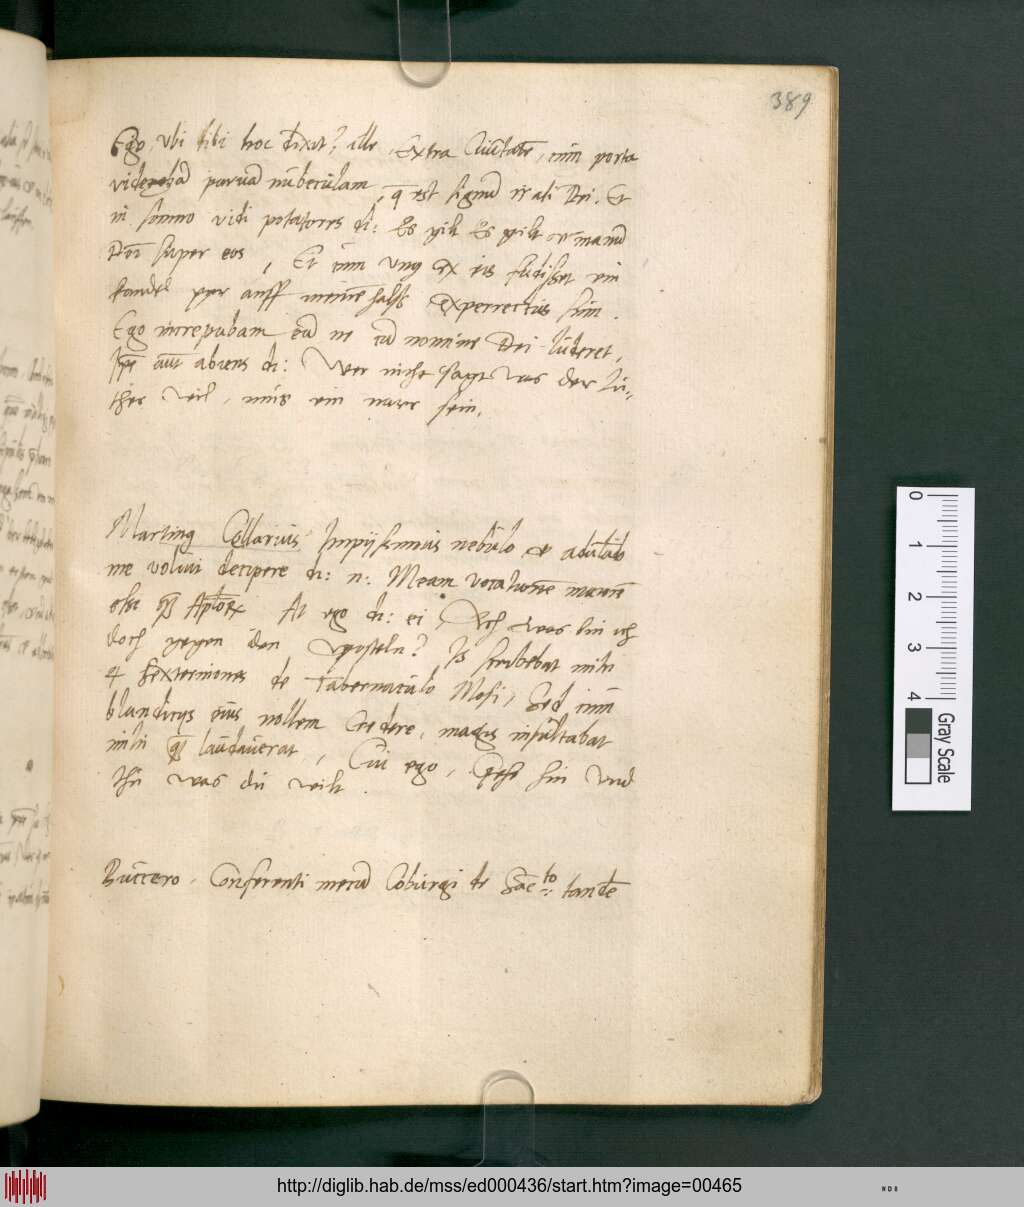 389
Ego, vbi tibi hoc dixit? ille, Extra Ciuitatē, cum porta
videbā paruā nubeculam, q̄ est signū irati Dei. Et
in somno vidi potatores di: Es gilt Es gilt et manū
Dei super eos, Et cum vnus ex eis fudisset ein
kandel pyr auff meinē halß experrectus sum.
Ego increpabam eū ne cū nomine Dei luderet,
Ipse aūt abiens di: Wer nicht sagt was der Lu-
ther wil, mus ein narr sein.
Martinus Cellarius Impijssimus nebulo
me voluit decipere di: n: Meam vocationē maiorē
esse q̄ Aptorū At ego di: ei, Ach was bin ich
doch gegen den Aposteln? Is scribebat mihi
4 Sexterniones de Tabernaculo Mosi, Sed cum
blanditijs eius nollem Credere, magis insultabat
mihi q̄ laudauerat, Cui ego, Gehe hin vnd
thu was du wilt.
Bucero, Conferenti mecū Coburgi de Sacto tandē
0 1 2 3 4
Gray Scale
http://diglib.hab.de/mss/ed000436/start.htm?image=00465